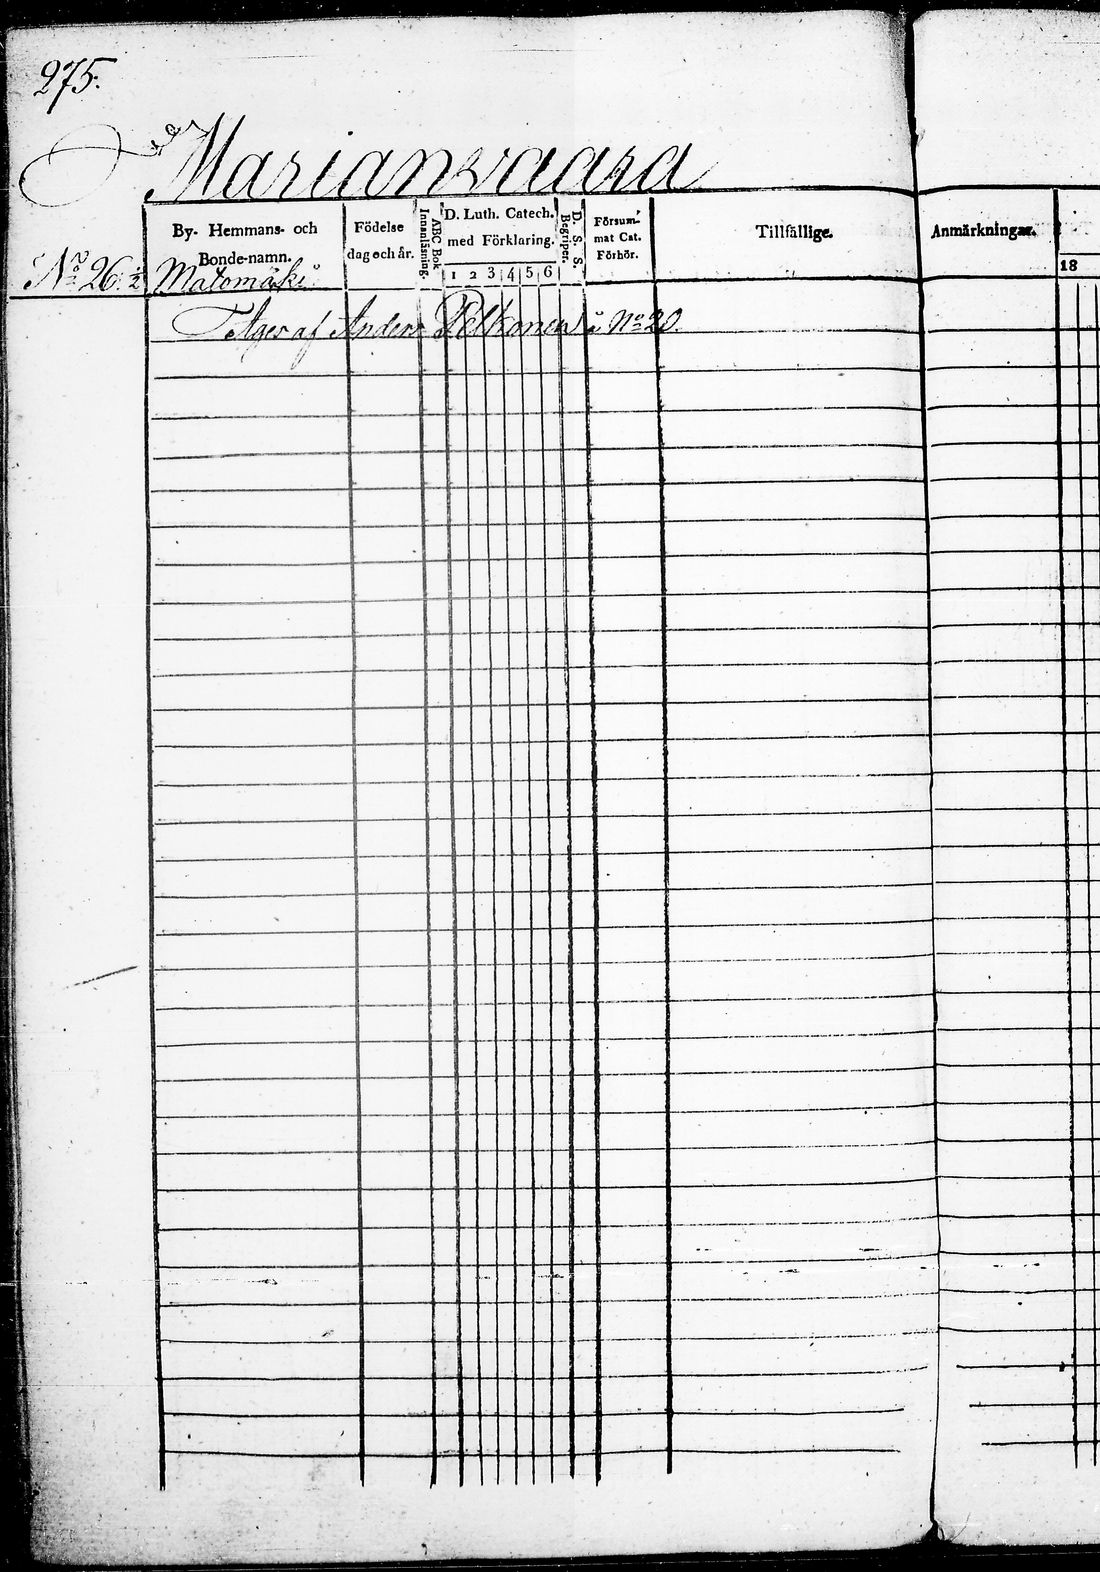 275.
Marianvaara
By- Hemmans- och Bonde-namn.
Födelse dag och år.
ABC Bok
Innanläsning.
D. Luth. Catech. med Förklaring.
1 2 3 4 5 6
D. S. S.
Begriper.
Försum- mat Cat. Förhör.
Tillfällige.
Anmärkningar.
18
No 26. ½ Matomäki
Äges af Anders Pelkonen å No 20.